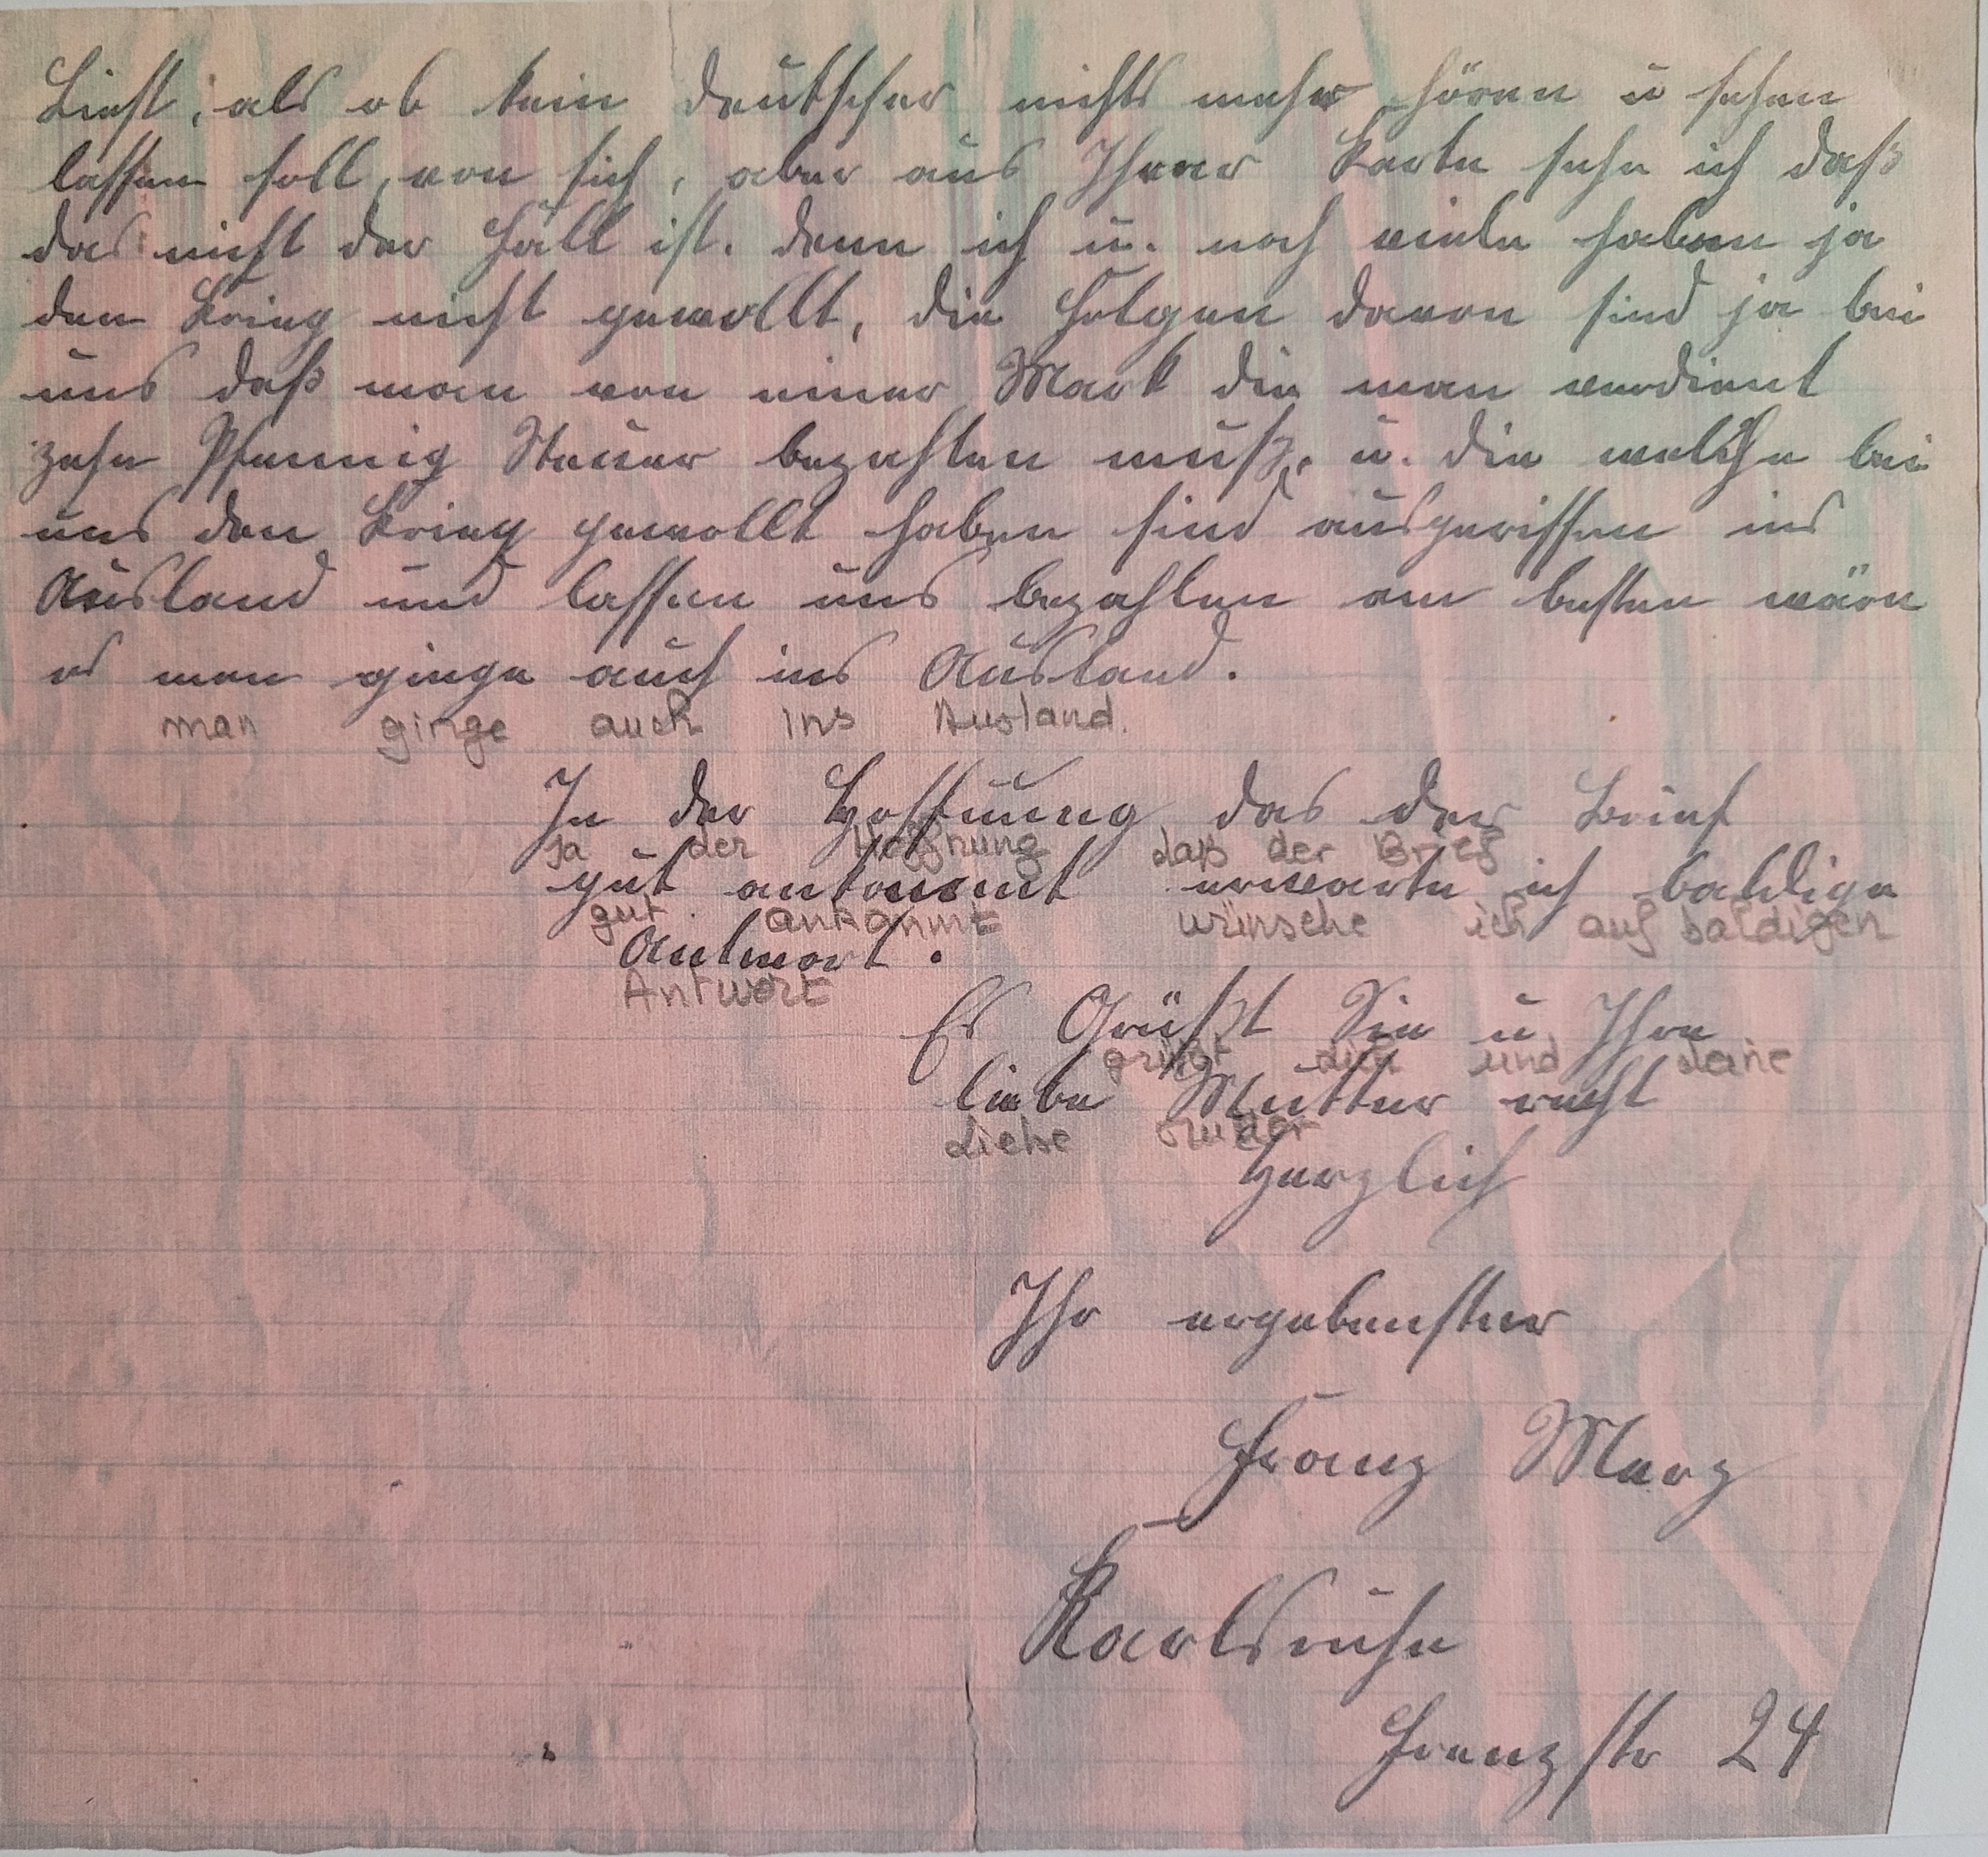 Ließt, als ob kein deutscher nichts mehr hören u sehen
lassen soll, von sich, aber aus Ihrer Karte sehe ich daß
das nicht der Fall ist. denn ich u. noch viele haben ja
den Krieg nicht gewollt, die Folgen davon sind ja bei
uns daß man von einer Mark die man verdient
zehn Pfennig Steuer bezahlen muß, u. die welche bei
uns den Krieg gewollt haben sind ausgerissen ins
Ausland und lassen uns bezahlen am besten wäre
es man ginge auch ins Ausland.
man ginge auch ins Ausland.
In der Hoffnung das der Brief
Ja der Hoffnung daß der Brief
gut ankommt erwarte ich baldige
gut ankommt wünsche ich auf baldigen
Antwort.
Antwort
Es Grüßt Sie u Ihre
grüßt dich und deine
liebe Mutter recht
Liebe
Herzlich
Ihr ergebenster
Franz Merz
Karlsruhe
str 24